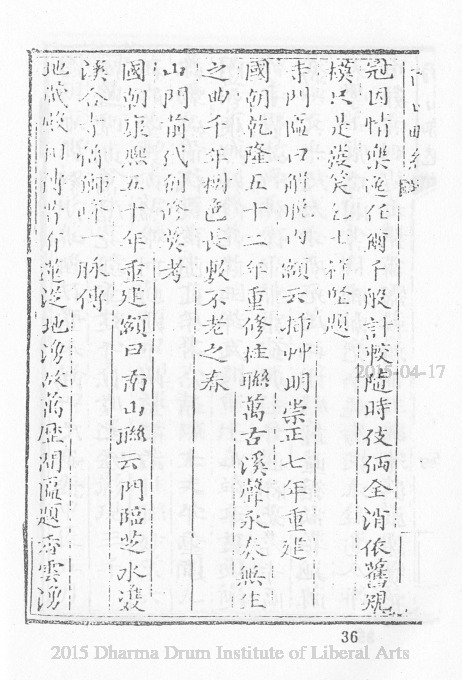 冠因情樂逸任爾千般計較隨時伎倆全消依舊規
模只是發笑乙士祥𡉏題
寺門匾口解脫內額云插艸明崇正七年重建
國朝乾隆五十二年重修柱聯萬古溪聲永奏無生
之曲千年樹色長敷不老之春
山門前代創修莫考
國朝康熙五十年重建額曰南山聯云門臨芝水
溪合寺 師 一脉傳
地藏 相傳 有蓮從地湧故萬歷間匾題香雲湧
2015-04-17
36
2015 Dharma Drum Institute of Liberal Arts